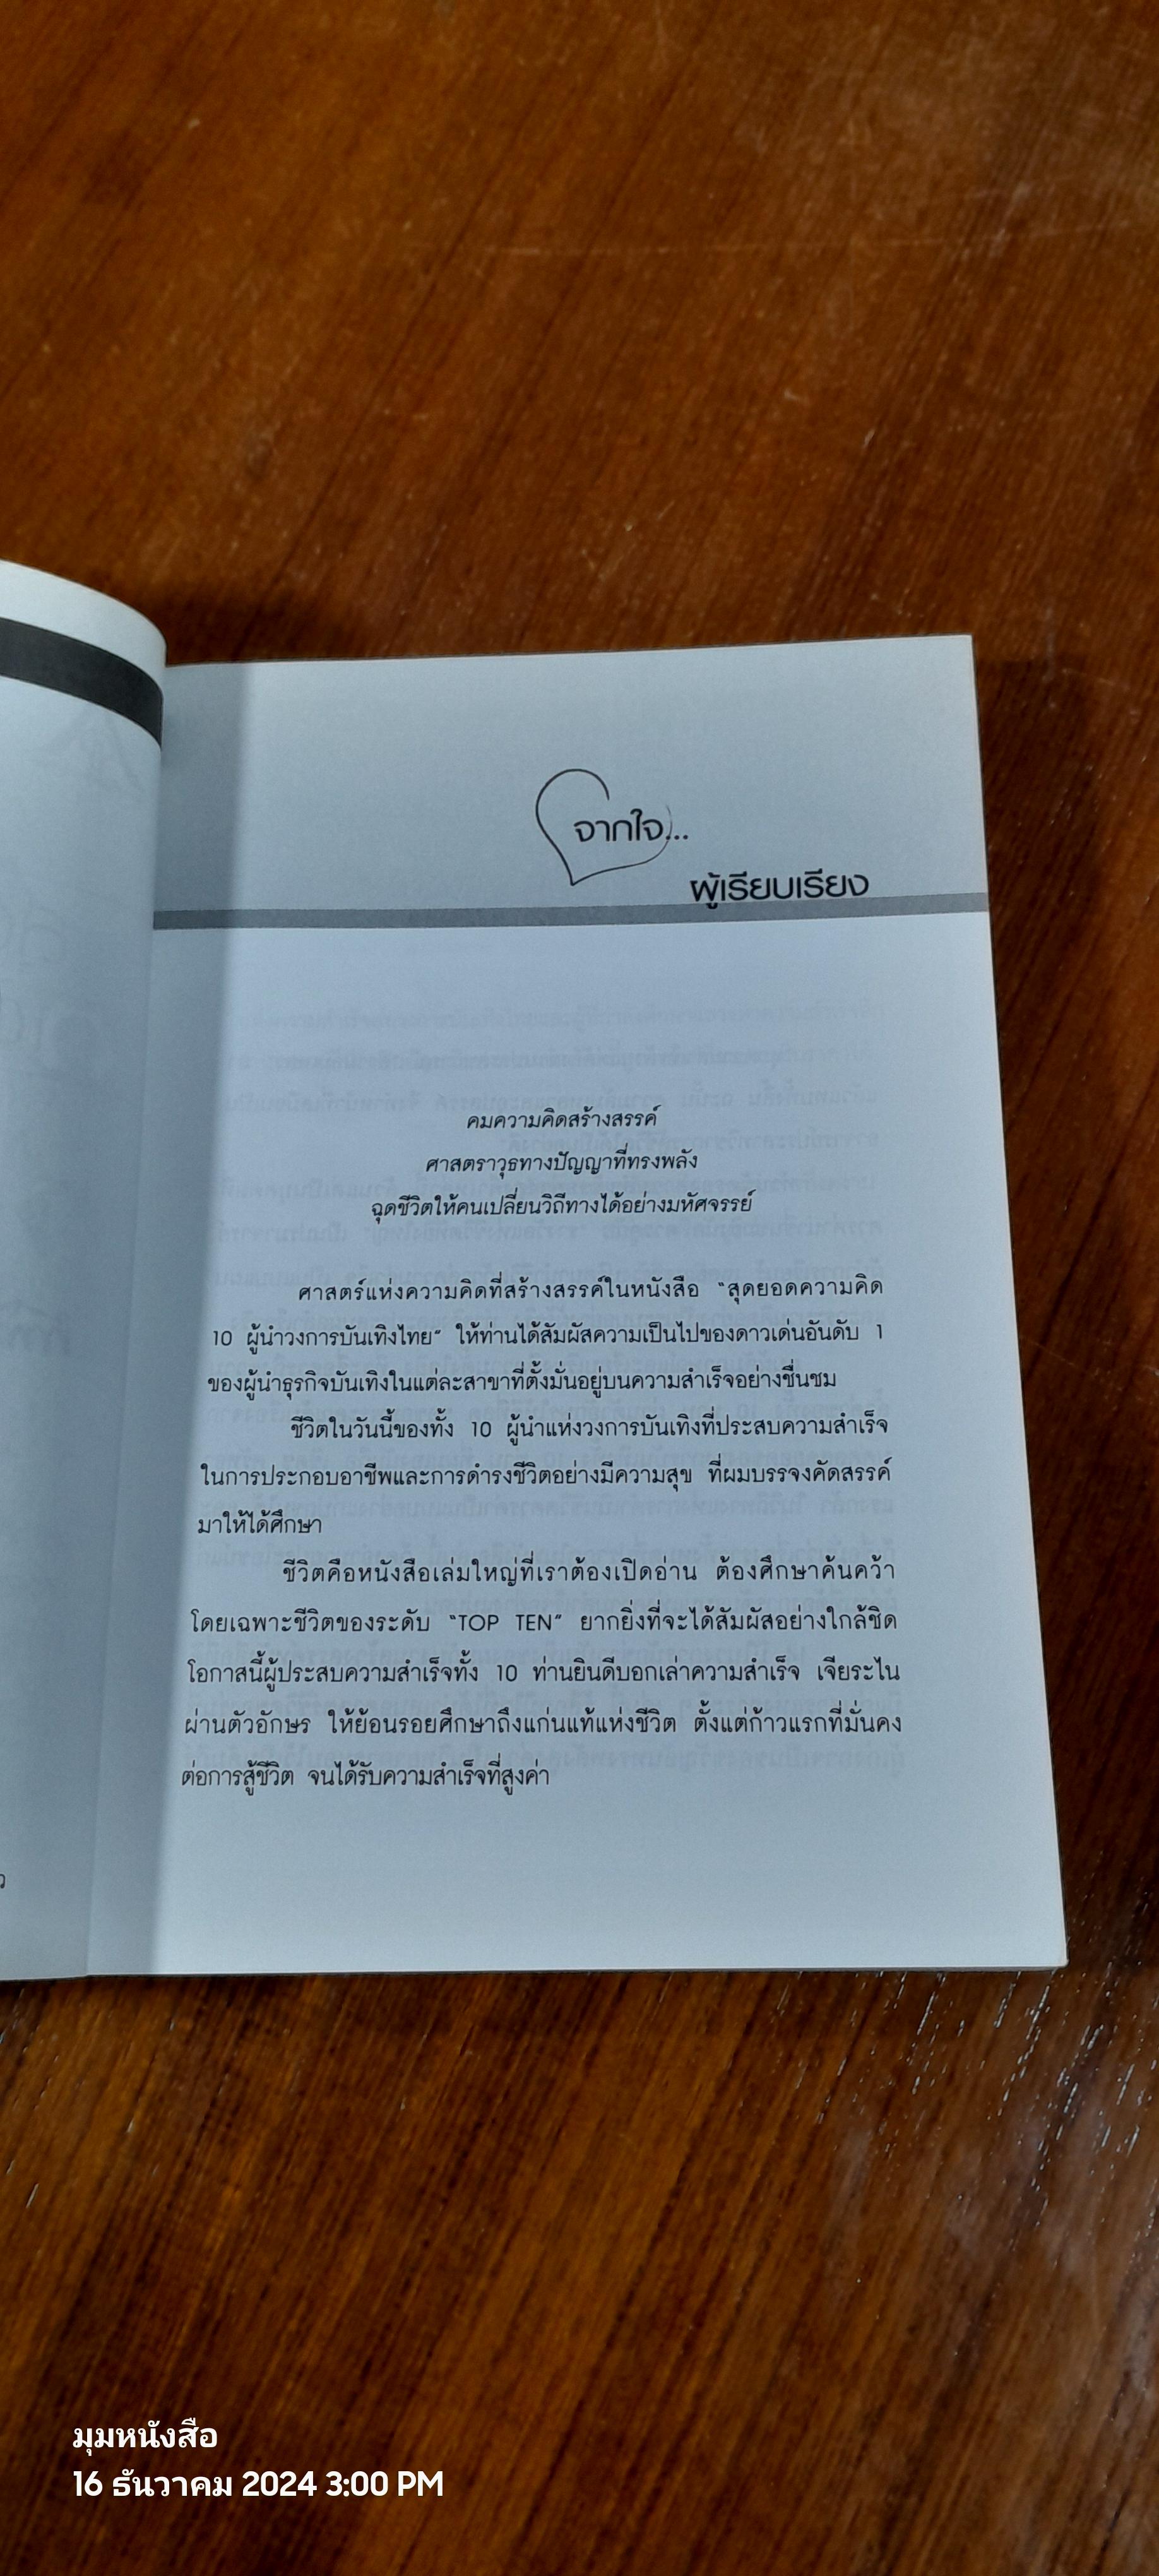 จากใจ...
ผู้เรียบเรียง
คมความคิดสร้างสรรค์
ศาสตราวุธทางปัญญาที่ทรงพลัง
ฉุดชีวิตให้คนเปลี่ยนวิถีทางได้อย่างมหัศจรรย์
ศาสตร์แห่งความคิดที่สร้างสรรค์ในหนังสือ "สุดยอดความคิด
10 ผู้นำวงการบันเทิงไทย" ให้ท่านได้สัมผัสความเป็นไปของดาวเด่นอันดับ 1
ของผู้นำธุรกิจบันเทิงในแต่ละสาขาที่ตั้งมั่นอยู่บนความสำเร็จอย่างชื่นชม
ชีวิตในวันนี้ของทั้ง 10 ผู้นำแห่งวงการบันเทิงที่ประสบความสำเร็จ
ในการประกอบอาชีพและการดำรงชีวิตอย่างมีความสุข ที่ผมบรรจงคัดสรรค์
มาให้ได้ศึกษา
ชีวิตคือหนังสือเล่มใหญ่ที่เราต้องเปิดอ่าน ต้องศึกษาค้นคว้า
โดยเฉพาะชีวิตของระดับ "TOP TEN" ยากยิ่งที่จะได้สัมผัสอย่างใกล้ชิด
โอกาสนี้ผู้ประสบความสำเร็จทั้ง 10 ท่านยินดีบอกเล่าความสำเร็จ เจียระไน
ผ่านตัวอักษร ให้ย้อนรอยศึกษาถึงแก่นแท้แห่งชีวิต ตั้งแต่ก้าวแรกที่มั่นคง
ต่อการสู้ชีวิต จนได้รับความสำเร็จที่สูงค่า
มุมหนังสือ
16 ธันวาคม 2024 3:00 PM